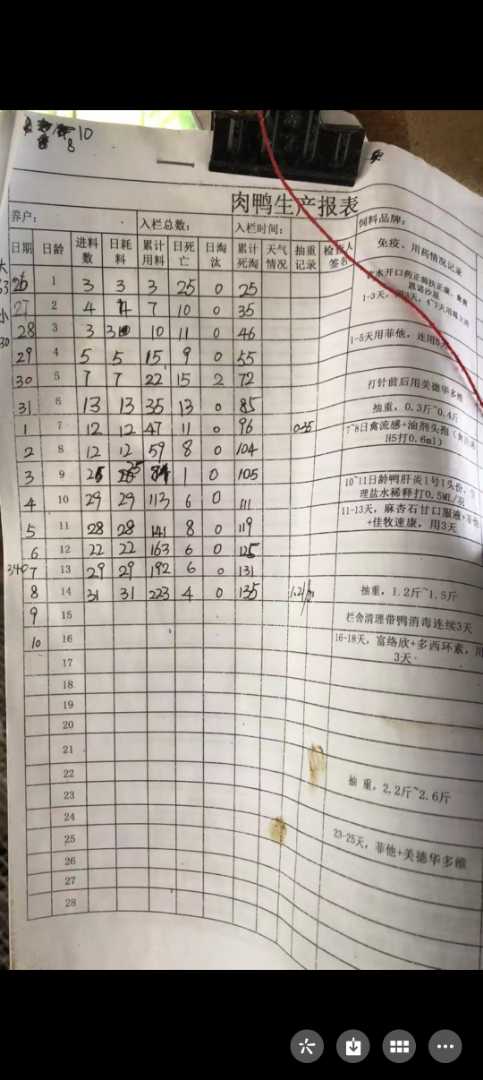 10
8
肉鸭生产报表
养户: 入栏总数: 入栏时间: 饲料品牌:
日期 日龄 进料数 日耗料 累计用料 日死亡 日淘汰 累计死淘 天气情况 抽重记录 检查人签名 免疫、用药情况记录
26 1 3 3 3 25 0 25
27 2 4 4 7 10 0 35 1-3天
28 3 3 3 10 11 0 46 1-5天用菲他,连用5天
29 4 5 5 15 9 0 55
30 5 7 7 22 15 2 72 打针前后用美德华多维
31 6 13 13 35 13 0 85 抽重,0.3斤~0.4斤
1 7 12 12 47 11 0 96 7~8日禽流感+油剂头孢
2 8 12 12 59 8 0 104 H5打0.6ml)
3 9 25 25 84 1 0 105
4 10 29 29 113 6 0 111 10~11日龄鸭肝炎1号1头份,生理盐水稀释打0.5ML/只
5 11 28 28 141 8 0 119 11-13天,麻杏石甘口服液+菲他+佳牧速康,用3天
6 12 22 22 163 6 0 125
340 7 13 29 29 192 6 0 131
8 14 31 31 223 4 0 135 抽重,1.2斤~1.5斤
9 15 栏舍清理带鸭消毒连续3天
10 16 16-18天,富络欣+多西环素,用3天
17
18
19
20
21
22 抽重,2.2斤~2.6斤
23
24 23-25天,菲他+美德华多维
25
26
27
28